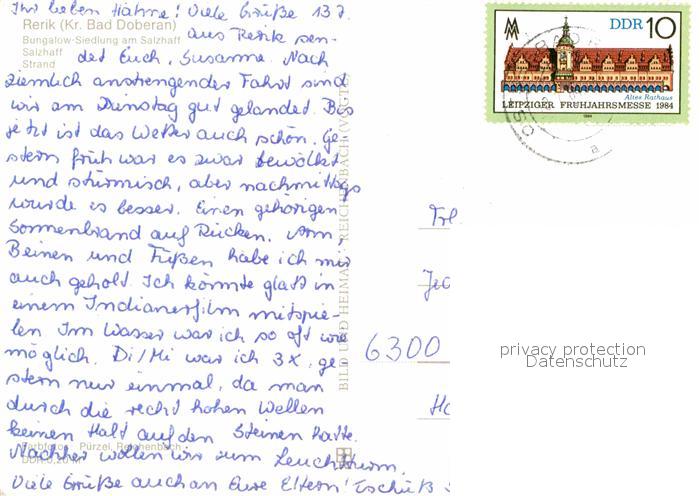 Ihr lieben Hähne! Viele Grüße 13.7.
Rerik (Kr. Bad Doberan)
aus Rerik sen-
Bungalow-Siedlung am Salzhaff
Salzhaff
Strand
det Euch, Susanne. Nach
ziemlich anstrengender Fahrt sind
wir am Dienstag gut gelandet. Bis
jetzt ist das Wetter auch schön. Ge
stern früh war es zwar bewölkt
und stürmisch, aber nachmittags
wurde es besser. Einen gehörigen
Sonnenbrand auf Rücken, Arm,
Beinen und Füßen habe ich mir
auch geholt. Ich könnte glatt in
einem Indianerfilm mitspie-
len Im Wasser war ich so oft wie
möglich. Di/Mi war ich 3x, ge
stern nur einmal, da man
durch die recht hohen Wellen
keinen Halt auf den Steinen hatte.
Farbfotos: Pürzel, Reichenbach
Nachher wollen wir zum Leuchtturm.
Viele Grüße auch an Eure Eltern! Tschüß S
BILD UND HEIMAT REICHENBACH (VOGTL)
MM
DDR 10
Altes Rathaus
LEIPZIGER FRÜHJAHRSMESSE 1984
a
Frl.
6300
privacy protection
Datenschutz